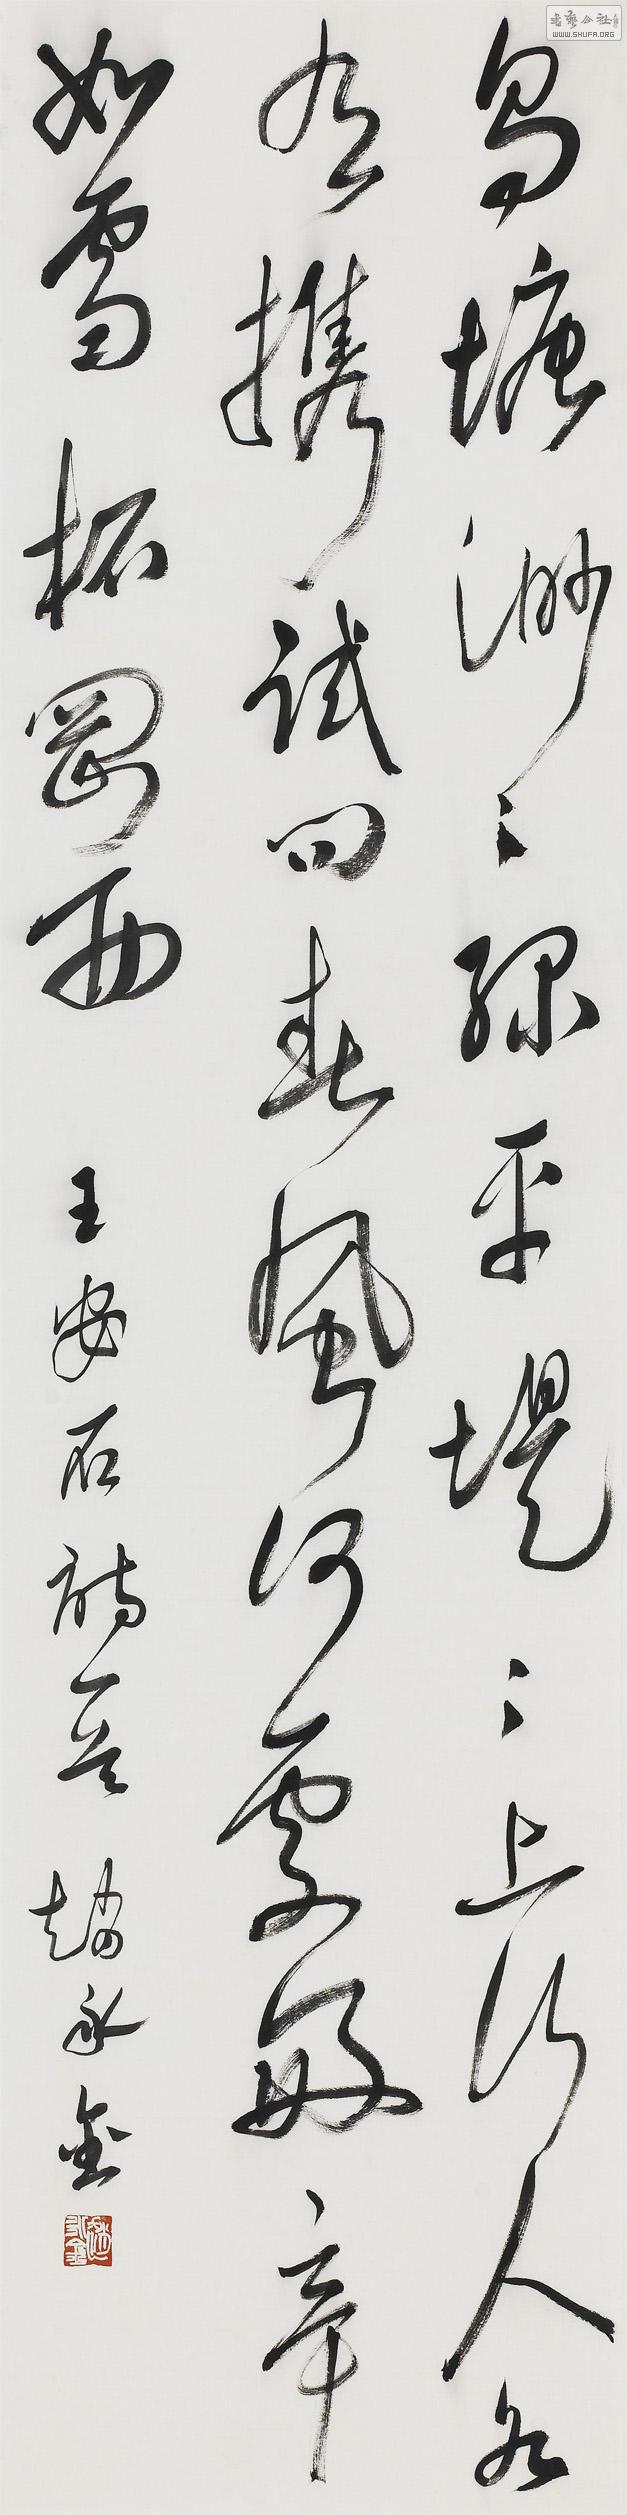 乌塘渺々绿平堤々上行人各
有携试问春风何处好辛
如雪柘冈西
王安石诗一首 赵永金
書藝公社
WWW.SHUFA.ORG